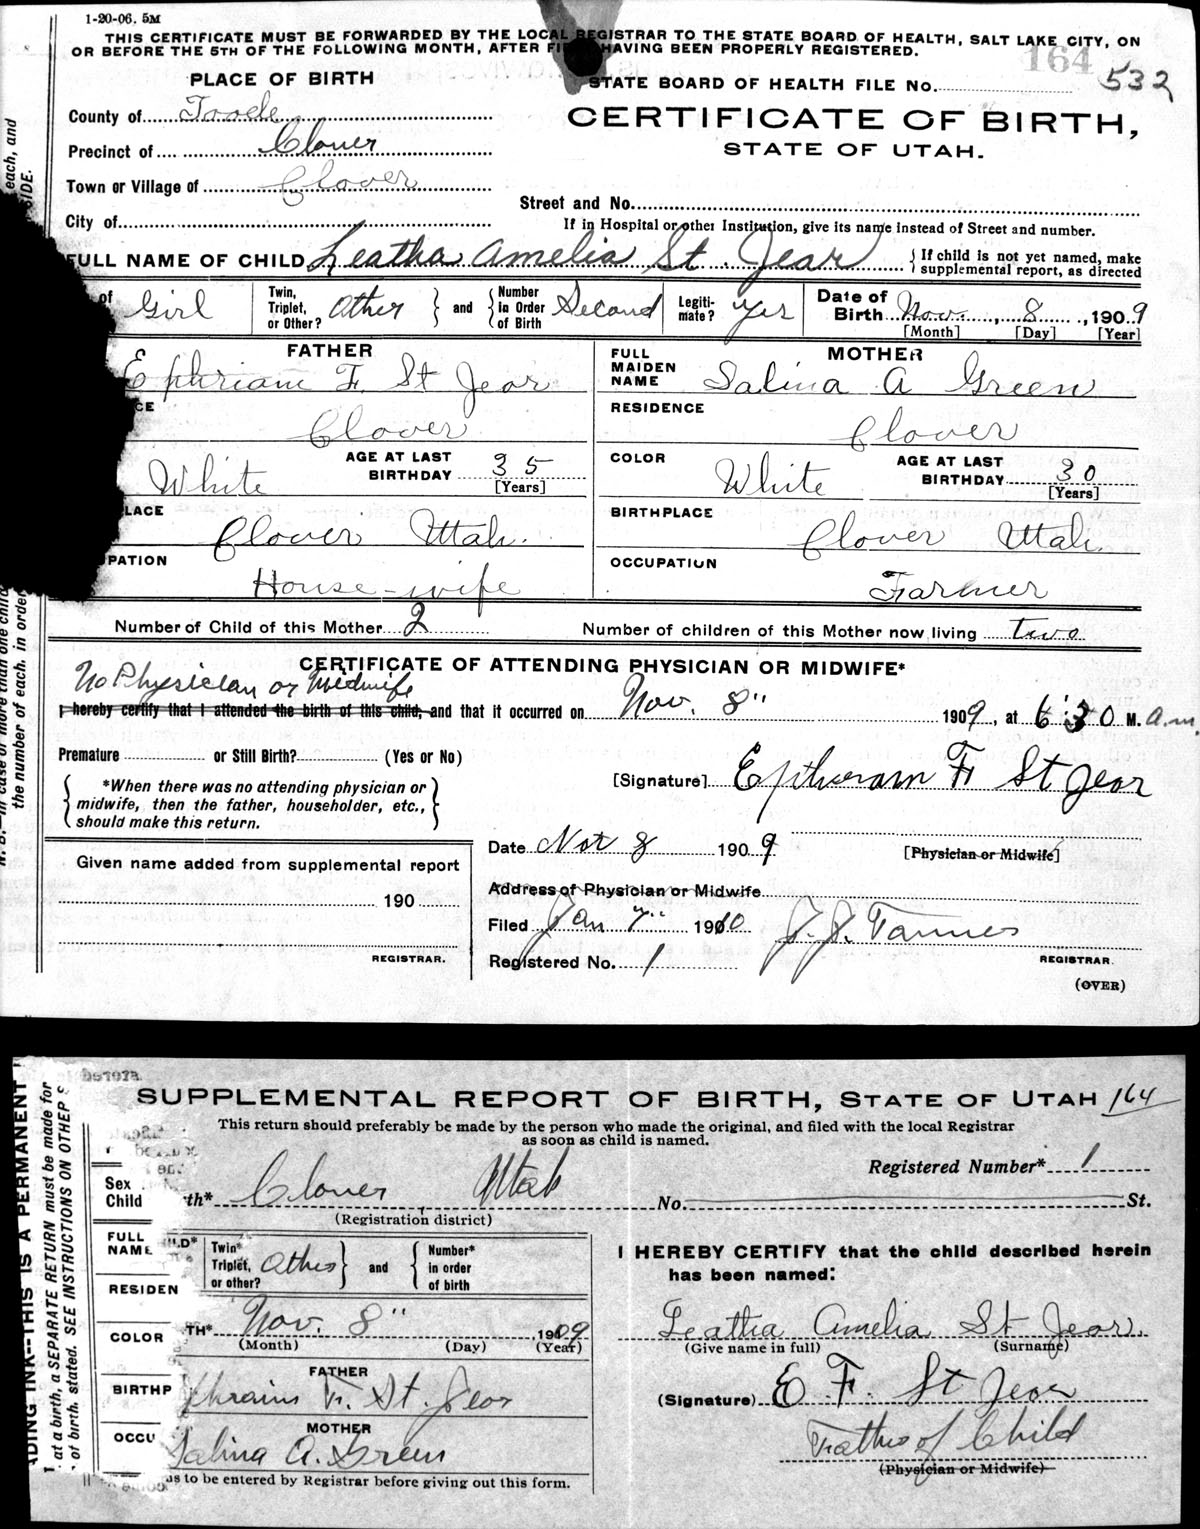 1-20-06. 5M
THIS CERTIFICATE MUST BE FORWARDED BY THE LOCAL REGISTRAR TO THE STATE BOARD OF HEALTH, SALT LAKE CITY, ON
OR BEFORE THE 5TH OF THE FOLLOWING MONTH, AFTER FI HAVING BEEN PROPERLY REGISTERED.
164
PLACE OF BIRTH
STATE BOARD OF HEALTH FILE No. 532
County of Tooele
CERTIFICATE OF BIRTH,
Precinct of Clover
STATE OF UTAH.
Town or Village of Clover
Street and No.
City of
If in Hospital or other Institution, give its name instead of Street and number.
FULL NAME OF CHILD Leatha Amelia St. Jear
{ If child is not yet named, make
supplemental report, as directed
of Girl
Twin, Triplet, or Other? Other } and { Number in Order of Birth Second
Legiti- mate? yes
Date of Birth Nov. 8, 1909
[Month] [Day] [Year]
FATHER
Ephriam F. St Jear
FULL MAIDEN NAME
MOTHER
Salina A Green
CE
Clover
RESIDENCE
Clover
White
AGE AT LAST BIRTHDAY 35
[Years]
COLOR
White
AGE AT LAST BIRTHDAY 30
[Years]
LACE
Clover Utah.
BIRTHPLACE
Clover Utah.
PATION
House-wife
OCCUPATION
Farmer
Number of Child of this Mother 2
Number of children of this Mother now living two
CERTIFICATE OF ATTENDING PHYSICIAN OR MIDWIFE*
No Physician or Midwife
I hereby certify that I attended the birth of this child, and that it occurred on Nov. 8" 1909, at 6:30 M. a.m.
Premature or Still Birth? (Yes or No)
[Signature] Ephraram F. St Jear
{ *When there was no attending physician or
midwife, then the father, householder, etc.,
should make this return. }
Date Nov 8 1909
[Physician or Midwife]
Given name added from supplemental report
190
Address of Physician or Midwife
Filed Jan 7" 1910 J. J. Tanner
REGISTRAR.
Registered No. 1
REGISTRAR.
(OVER)
each, and
SIDE.
N. B.—In case of more than one child
the number of each, in order
SUPPLEMENTAL REPORT OF BIRTH, STATE OF UTAH 164
This return should preferably be made by the person who made the original, and filed with the local Registrar
as soon as child is named.
Registered Number* 1
Sex
Child
th* Clover Utah
No. St.
(Registration district)
FULL
NAME
ILD*
Twin* Triplet, or other? Other } and { Number* in order of birth
I HEREBY CERTIFY that the child described herein
has been named:
RESIDEN
COLOR
TH* Nov. 8" 1909
(Month) (Day) (Year)
Leatha Amelia St Jear.
(Give name in full) (Surname)
BIRTHP
FATHER
phraim F. St. Jear
(Signature) E. F. St Jear
OCCU
MOTHER
Salina A. Green
Father of Child
(Physician or Midwife)
as to be entered by Registrar before giving out this form.
ADING INK--THIS IS A PERMANENT
at a birth, a SEPARATE RETURN must be made for
of birth stated. SEE INSTRUCTIONS ON OTHER S